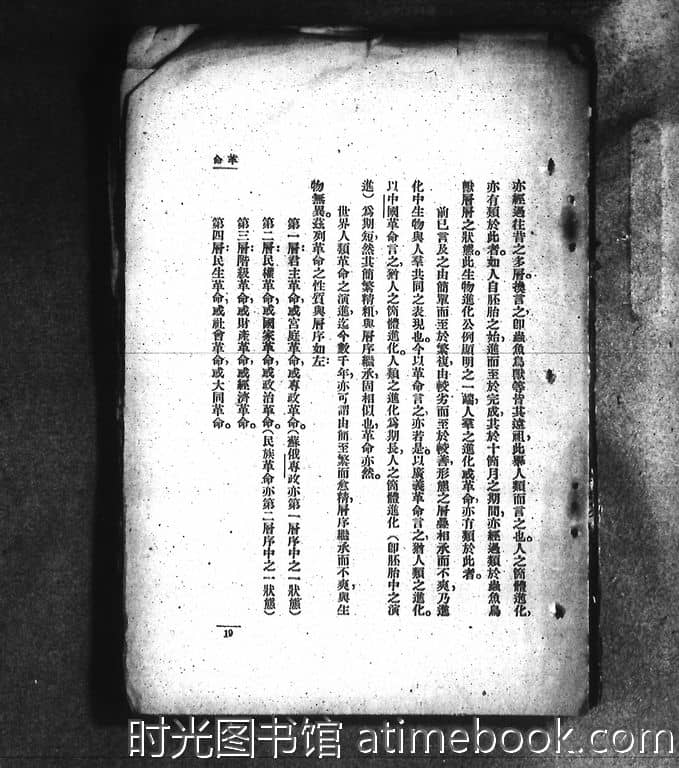 革命
亦經過往昔之多層換言之卽蟲魚鳥獸等皆其遠祖此舉人類而言之也。人之箇體進化,
亦有類於此者。如人自胚胎之始進而至於完成,其於十箇月之期間亦經過類於蟲魚鳥
獸層層之狀態。此生物進化公例顯明之一端,人羣之進化或革命,亦有類於此者。
前已言及之由簡單而至於繁復由較劣而至於較善形態之層疊相承而不爽,乃進
化中生物與人羣共同之表現也。今以革命言之亦若是。以廣義革命言之,猶人類之進化。
以中國革命言之,猶人之箇體進化。人類之進化爲期長,人之箇體進化(卽胚胎中之演
進)爲期短,然其簡繁精粗與層序繼承,固相似也,革命亦然。
世界人類革命之演進,迄今數千年,亦可謂由簡至繁而愈精,層序繼承而不爽,與生
物無異。茲列革命之性質與層序如左:
第一層:君主革命,或宮庭革命,或專政革命。(蘇俄專政亦第一層序中之一狀態)
第二層:民權革命,或國家革命,或政治革命。(民族革命亦第二層序中之一狀態)
第三層:階級革命,或財產革命,或經濟革命。
第四層:民生革命,或社會革命,或大同革命。
19
时光图书馆 atimebook.com